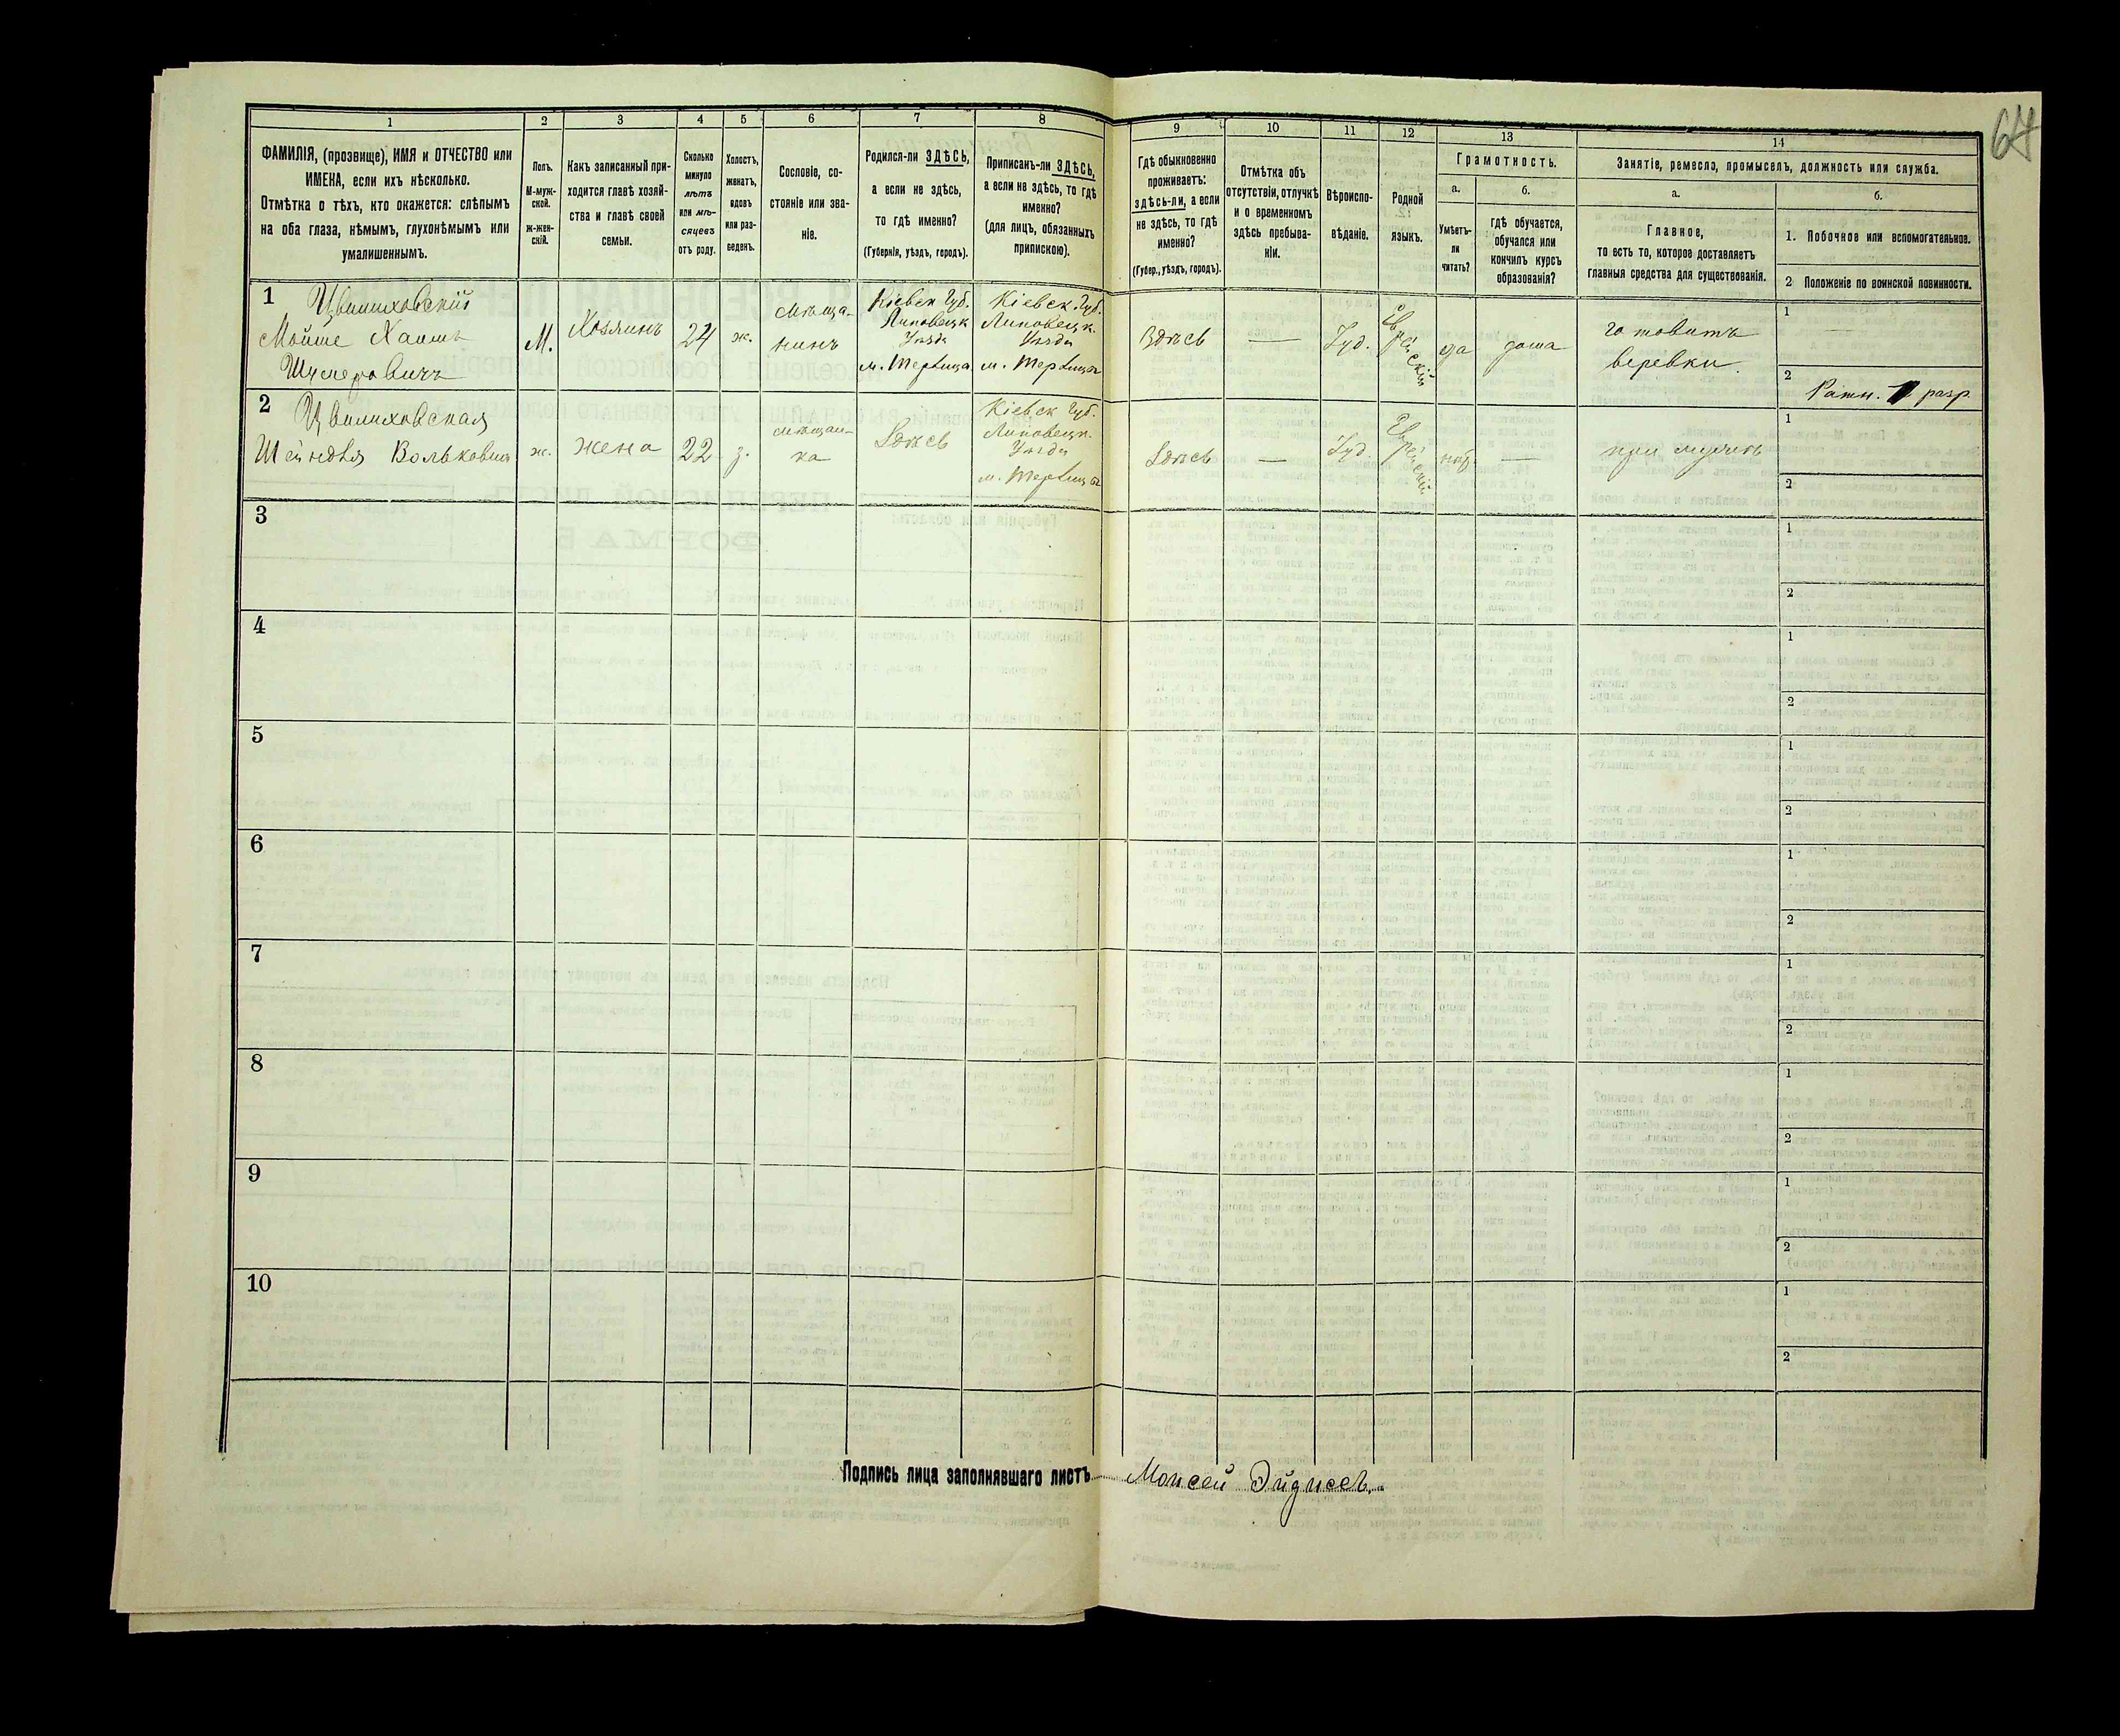 64
1
2
3
4
5
6
7
8
9
10
11
12
13
14
ФАМИЛІЯ, (прозвище), ИМЯ и ОТЧЕСТВО или
ИМЕНА, если ихъ нѣсколько.
Отмѣтка о тѣхъ, кто окажется: слѣпымъ
на оба глаза, нѣмымъ, глухонѣмымъ или
умалишеннымъ.
Полъ.
М-муж-
ской.
ж-жен-
скій.
Какъ записанный при-
ходится главѣ хозяй-
ства и главѣ своей
семьи.
Сколько
минуло
лѣтъ
или мѣ-
сяцевъ
отъ роду.
Холостъ,
женатъ,
вдовъ
или раз-
веденъ.
Сословіе, со-
стояніе или зва-
ніе.
Родился-ли ЗДѢСЬ,
а если не здѣсь,
то гдѣ именно?
(Губернія, уѣздъ, городъ).
Приписанъ-ли ЗДѢСЬ,
а если не здѣсь, то гдѣ
именно?
(для лицъ, обязанныхъ
припискою).
Гдѣ обыкновенно
проживаетъ:
здѣсь-ли, а если
не здѣсь, то гдѣ
именно?
(Губер., уѣздъ, городъ).
Отмѣтка объ
отсутствіи, отлучкѣ
и о временномъ
здѣсь пребыва-
ніи.
Вѣроиспо-
вѣданіе.
Родной
языкъ.
Грамотность.
а.
Умѣетъ-
ли
читать?
б.
гдѣ обучается,
обучался или
кончилъ курсъ
образованія?
Занятіе, ремесло, промыселъ, должность или служба.
а.
Главное,
то есть то, которое доставляетъ
главныя средства для существованія.
б.
1. Побочное или вспомогательное.
2 Положеніе по воинской повинности.
1
Цвилиховскій
Мойше Хаимъ
Шулеровичъ
М.
Хозяинъ
24
ж.
Мѣща-
нинъ
Кіевск Губ.
Липовецк
Уѣзда
Кіевск. Губ.
Липовецк.
Уѣзда
Здѣсь
—
Іуд.
Еврейскій
да
дома
готовитъ
веревки.
1
—
2
Ратн. 1 разр
2
Цвилиховская
Шейндля Вольковна
ж.
жена
22
з.
мѣщан-
ка
Здѣсь
Кіевск Губ.
Липовецк.
Уѣзда
Здѣсь
—
Іуд.
Еврейскій
—
при мужѣ
1
2
3
1
2
4
1
2
5
1
2
6
1
2
7
1
2
8
1
2
9
1
2
10
1
2
Подпись лица заполнявшаго листъ
Моисей